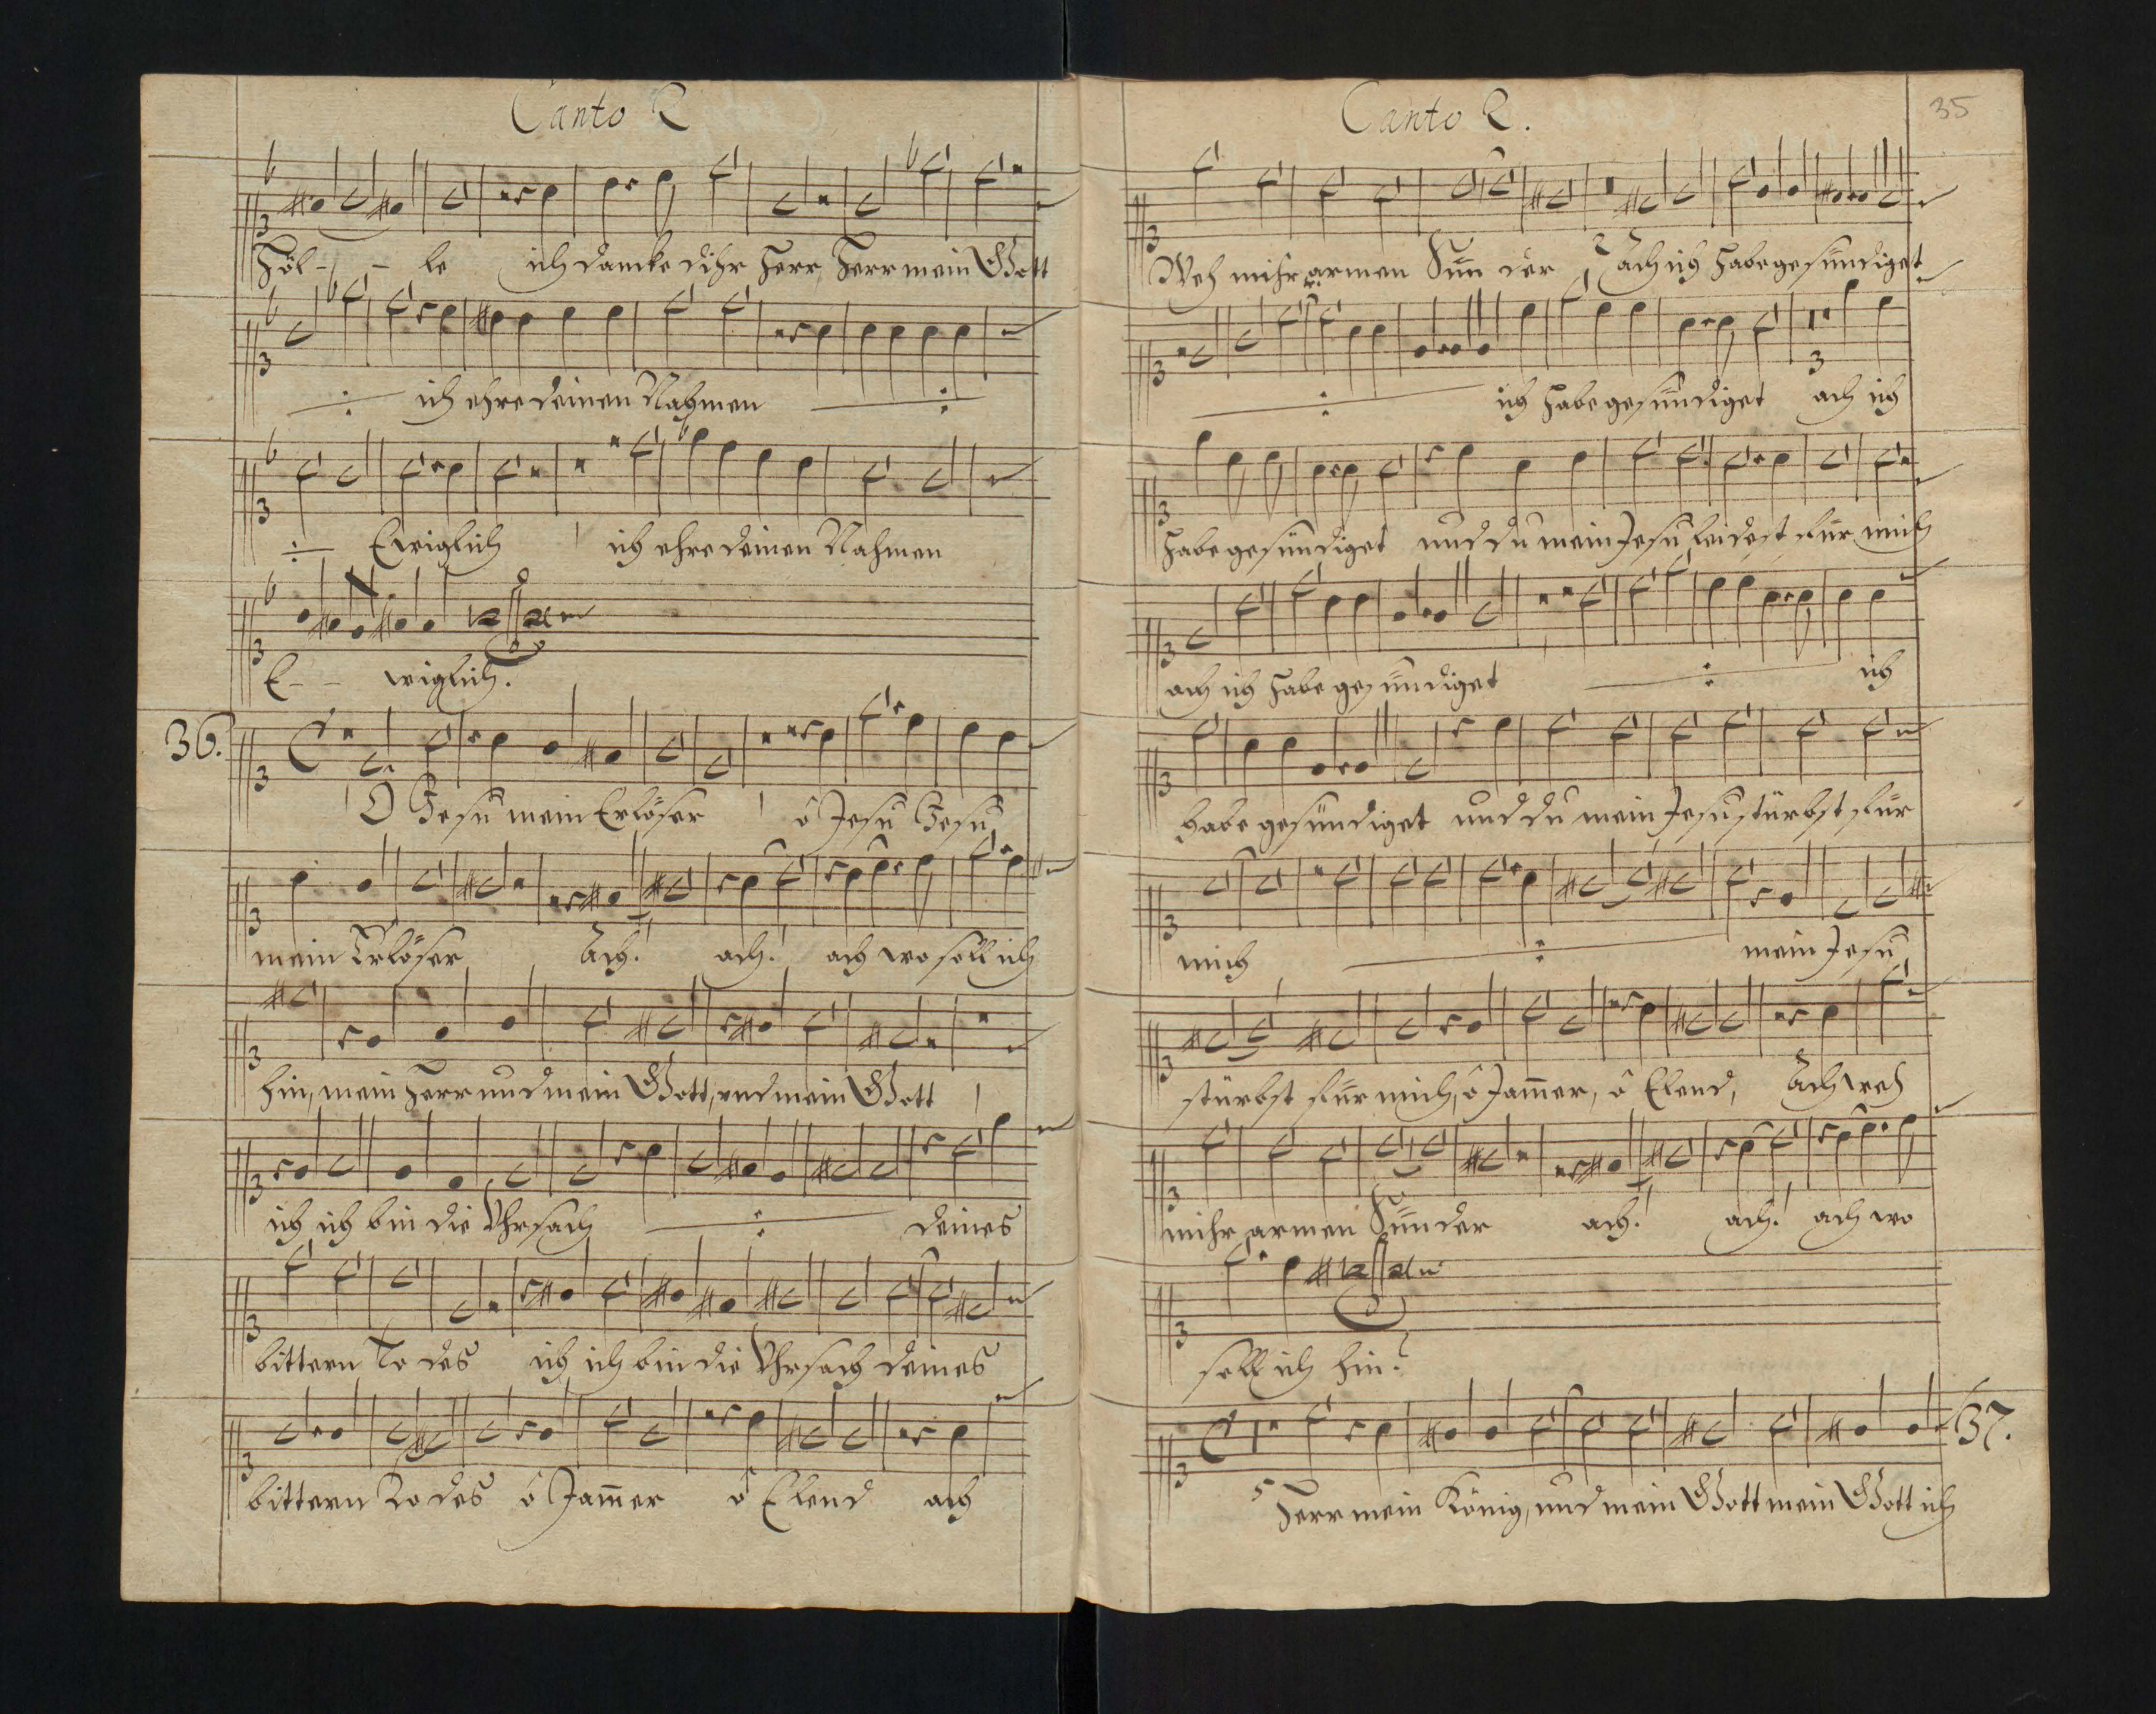 Canto 2
Höl - - le ich dancke dihr Herr, Herr mein Gott
ich ehre deinen Nahmen
Ewiglich ich ehre deinen Nahmen
E - - wiglich.
36.
O Jesu mein Erlöser ô Jesu Jesu,
mein Erlöser Ach! ach! ach wo soll ich
hin, mein Herr und mein Gott, und mein Gott
ich ich bin die Uhrsach deines
bittern To des ich ich bin die Uhrsach deines
bittern To des ô Jam̄er ô Elend ach
Canto 2.
35
Weh mihr armen Sün der, Ach ich habe gesündiget
ich habe gesündiget ach ich
habe gesündiget und du mein Jesu leidest für mich
ach ich habe gesündiget ich
habe gesündiget und du mein Jesu stürbst für
mich mein Jesu,
stürbst für mich, ô Jam̄er, ô Elend, Ach weh
mihr armen Sünder ach! ach! ach wo
soll ich hin?
37.
Herr mein König, und mein Gott mein Gott ich